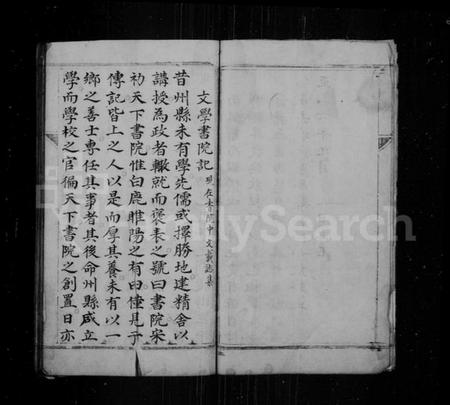 文學書院記
昔州縣未有學先儒或擇勝地建精舍以
講授為政者輒就而褒表之號曰書院宋
初天下書院惟白鹿睢陽之有田僅見于
傳記皆上之人以是而厚其養未有以一
鄉之善士專任其事者其後命州縣咸立
學而學校之官徧天下書院之創置日亦
FamilySearch